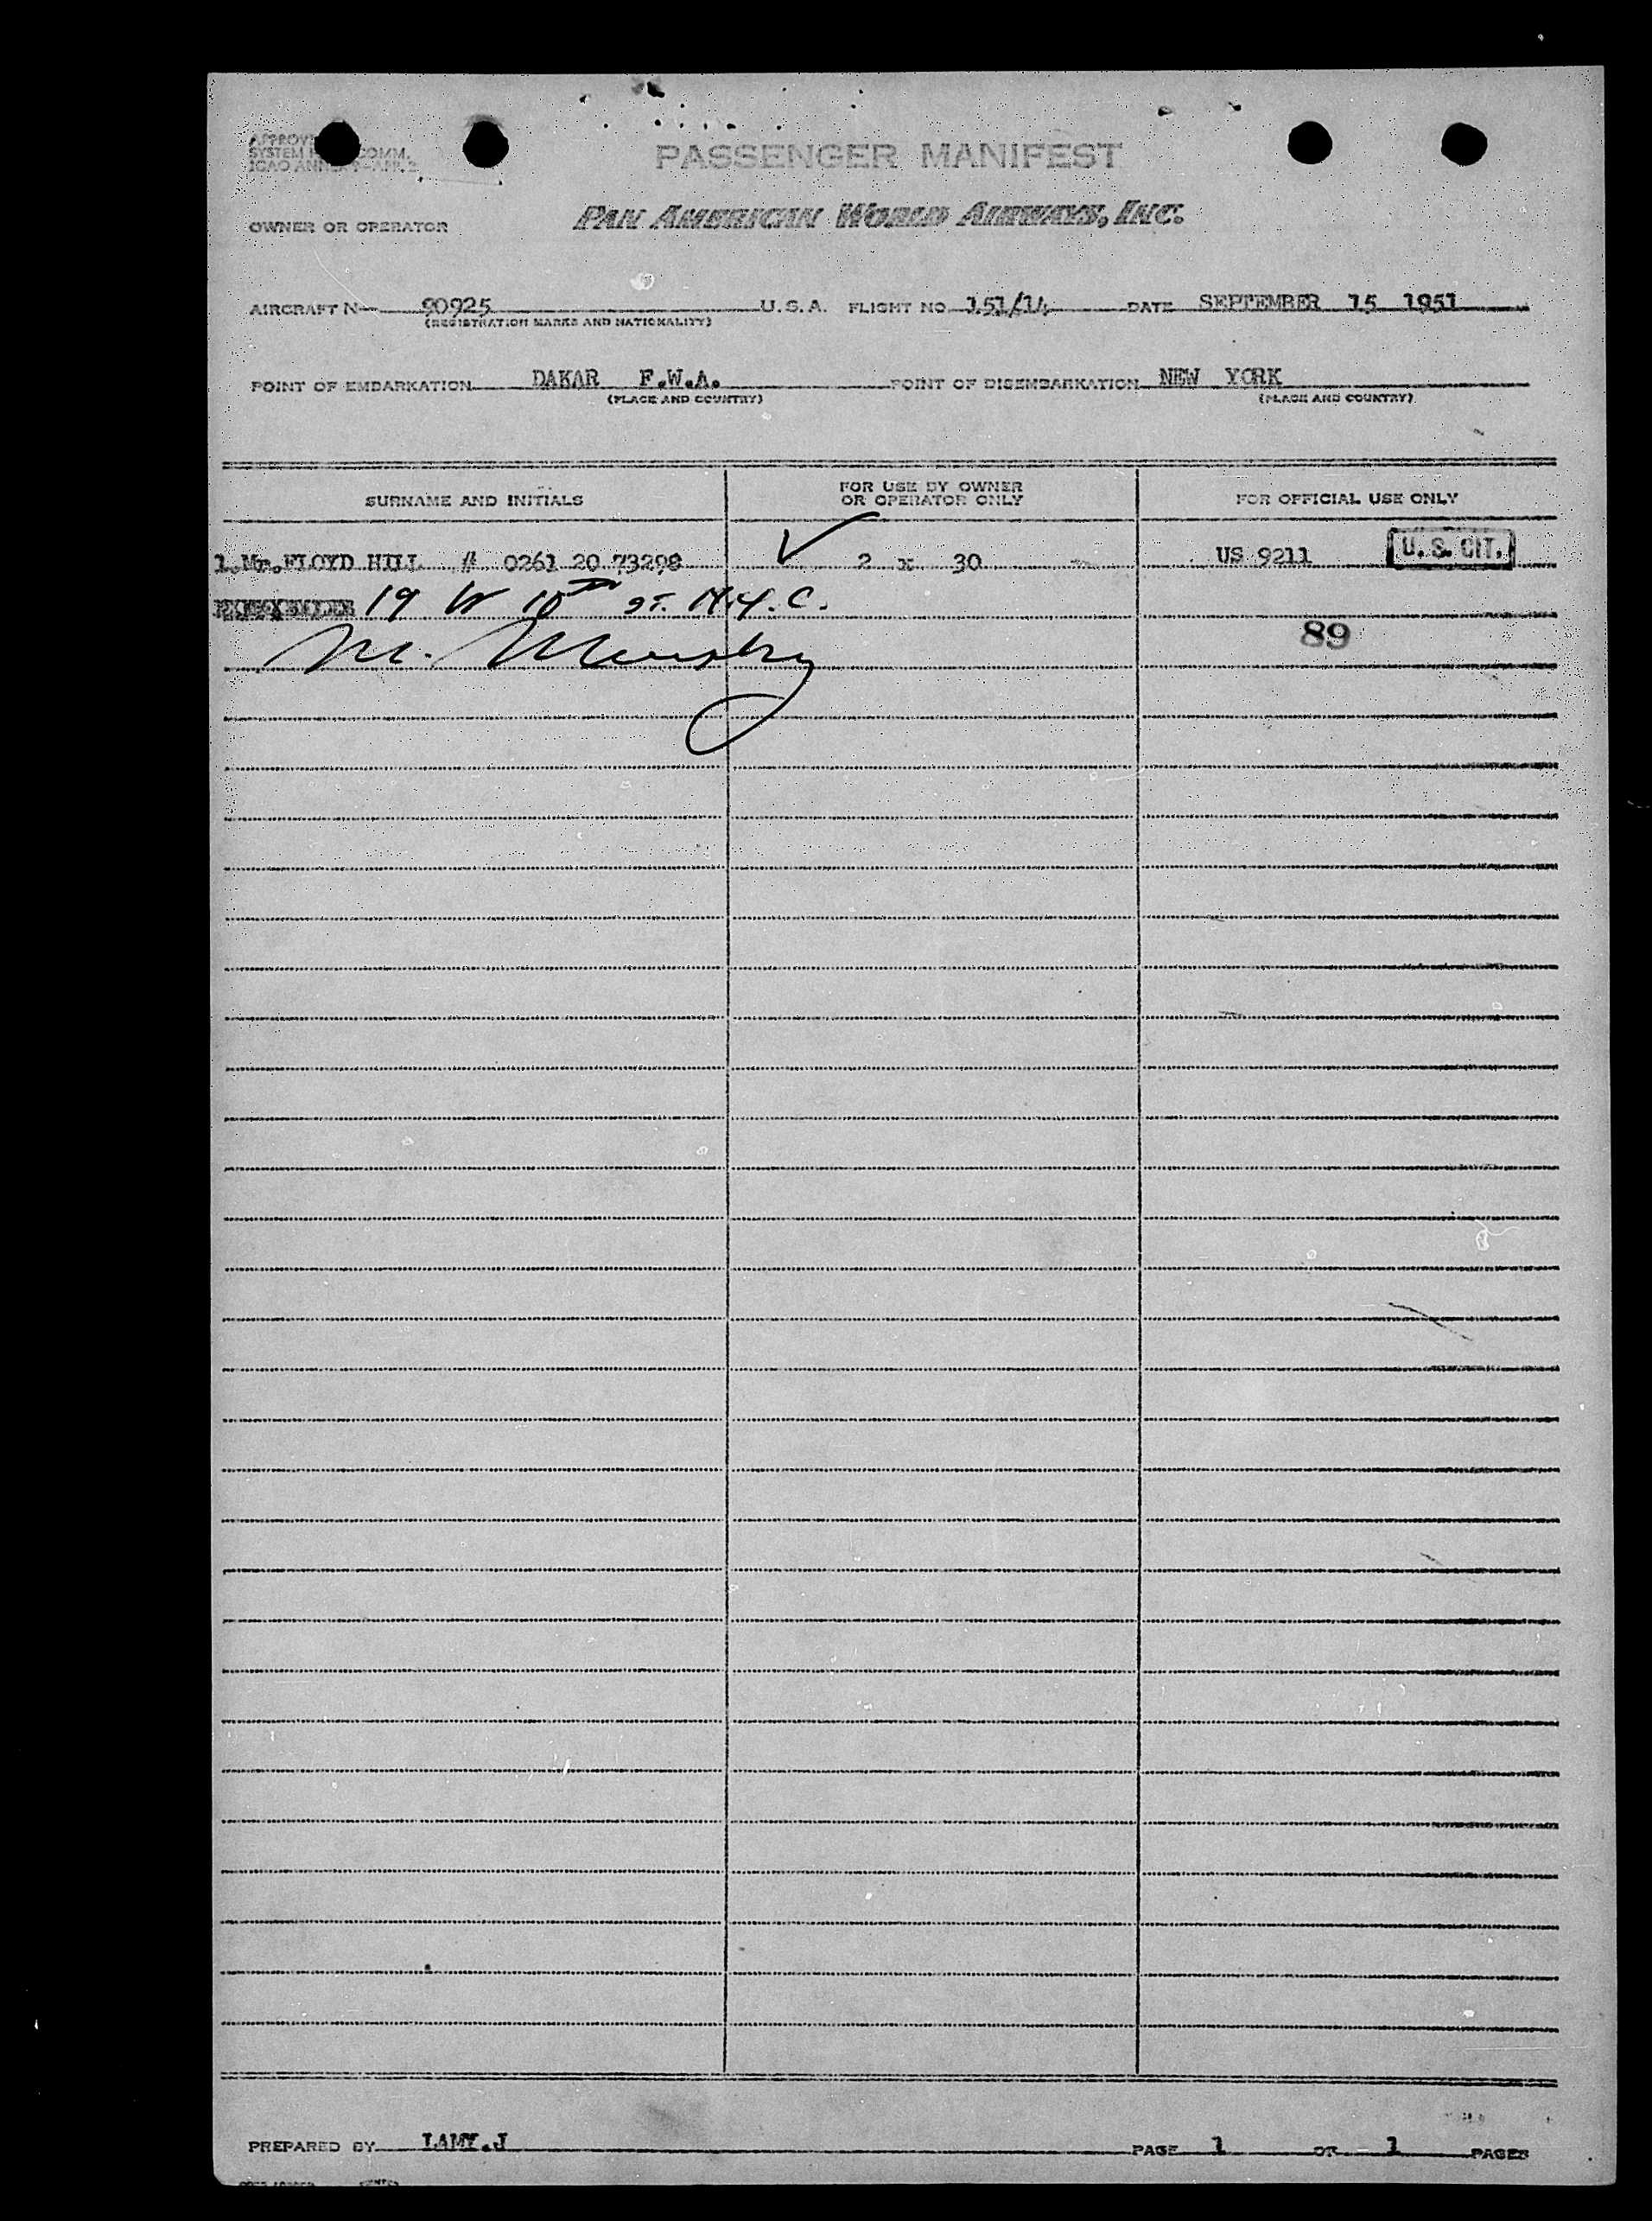 PASSENGER MANIFEST
SYSTEM COMM.
OWNER OR OPERATOR PAN AMERICAN WORLD AIRWAYS, INC.
AIRCRAFT N 90925 U.S.A. FLIGHT NO 151/14 DATE SEPTEMBER 15 1951
(REGISTRATION MARKS AND NATIONALITY)
POINT OF EMBARKATION DAKAR F.W.A. POINT OF DISEMBARKATION NEW YORK
(PLACE AND COUNTRY) (PLACE AND COUNTRY)
SURNAME AND INITIALS FOR USE BY OWNER OR OPERATOR ONLY FOR OFFICIAL USE ONLY
1.Mr.FLOYD HILL # 0261 20 73298 2 x 30 US 9211 U.S. CIT.
19 W 10TH ST. N.Y.C.
M. 89
PREPARED BY LAMY.J PAGE 1 OF 1 PAGES